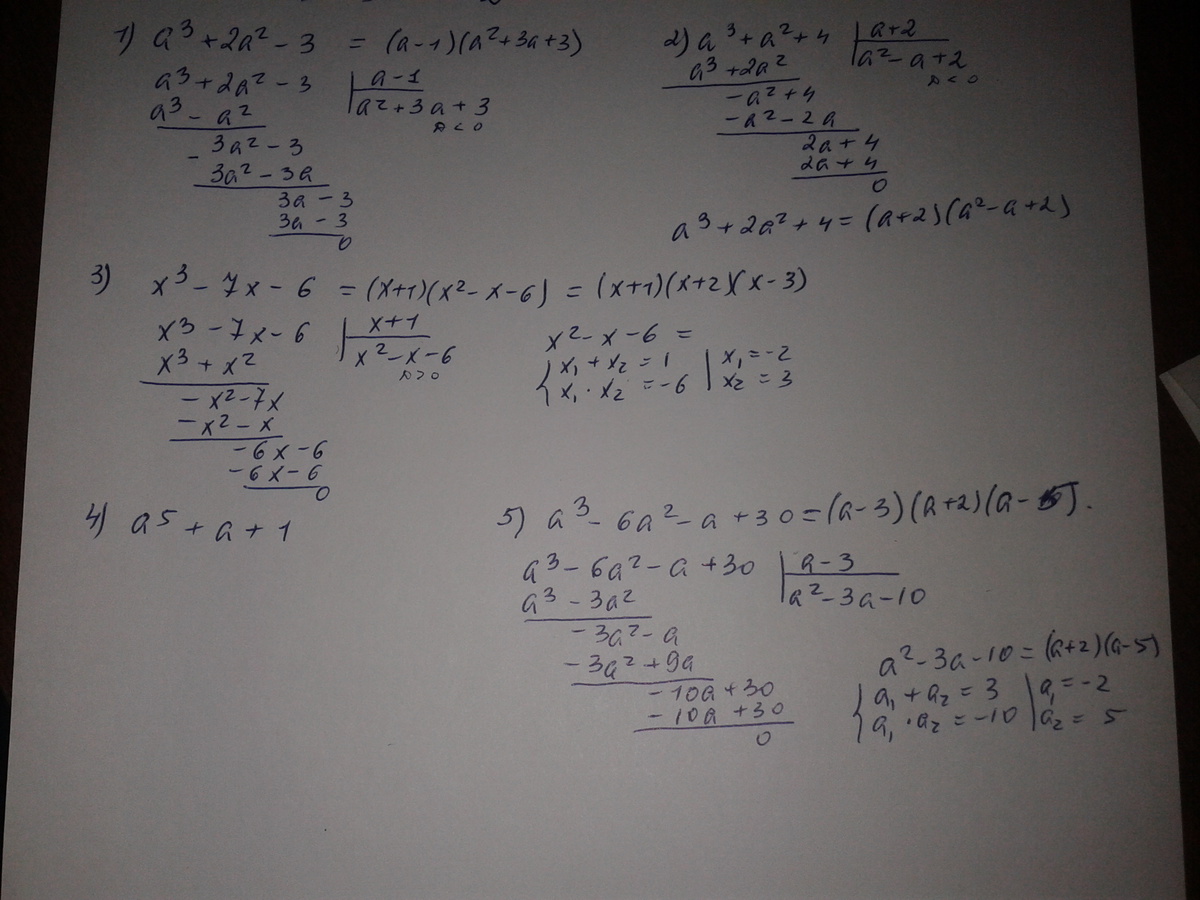 1) a³ + 2a² - 3 = (a-1)(a²+3a+3)
a³ + 2a² - 3 | a-1
a³ - a² | a² + 3a + 3
D < 0
- 3a² - 3
3a² - 3a
3a - 3
3a - 3
0
2) a³ + a² + 4 | a+2
a³ + 2a² | a² - a + 2
D < 0
-a² + 4
-a² - 2a
2a + 4
2a + 4
0
a³ + 2a² + 4 = (a+2)(a² - a + 2)
3) x³ - 7x - 6 = (x+1)(x² - x - 6) = (x+1)(x+2)(x-3)
x³ - 7x - 6 | x+1
x³ + x² | x² - x - 6
D > 0
- x² - 7x
- x² - x
- 6x - 6
- 6x - 6
0
x² - x - 6 =
{ x₁ + x₂ = 1 | x₁ = -2
x₁ · x₂ = -6 | x₂ = 3
4) a⁵ + a + 1
5) a³ - 6a² - a + 30 = (a-3)(a+2)(a-5).
a³ - 6a² - a + 30 | a-3
a³ - 3a² | a² - 3a - 10
- 3a² - a
- 3a² + 9a
- 10a + 30
- 10a + 30
0
a² - 3a - 10 = (a+2)(a-5)
{ a₁ + a₂ = 3 | a₁ = -2
a₁ · a₂ = -10 | a₂ = 5